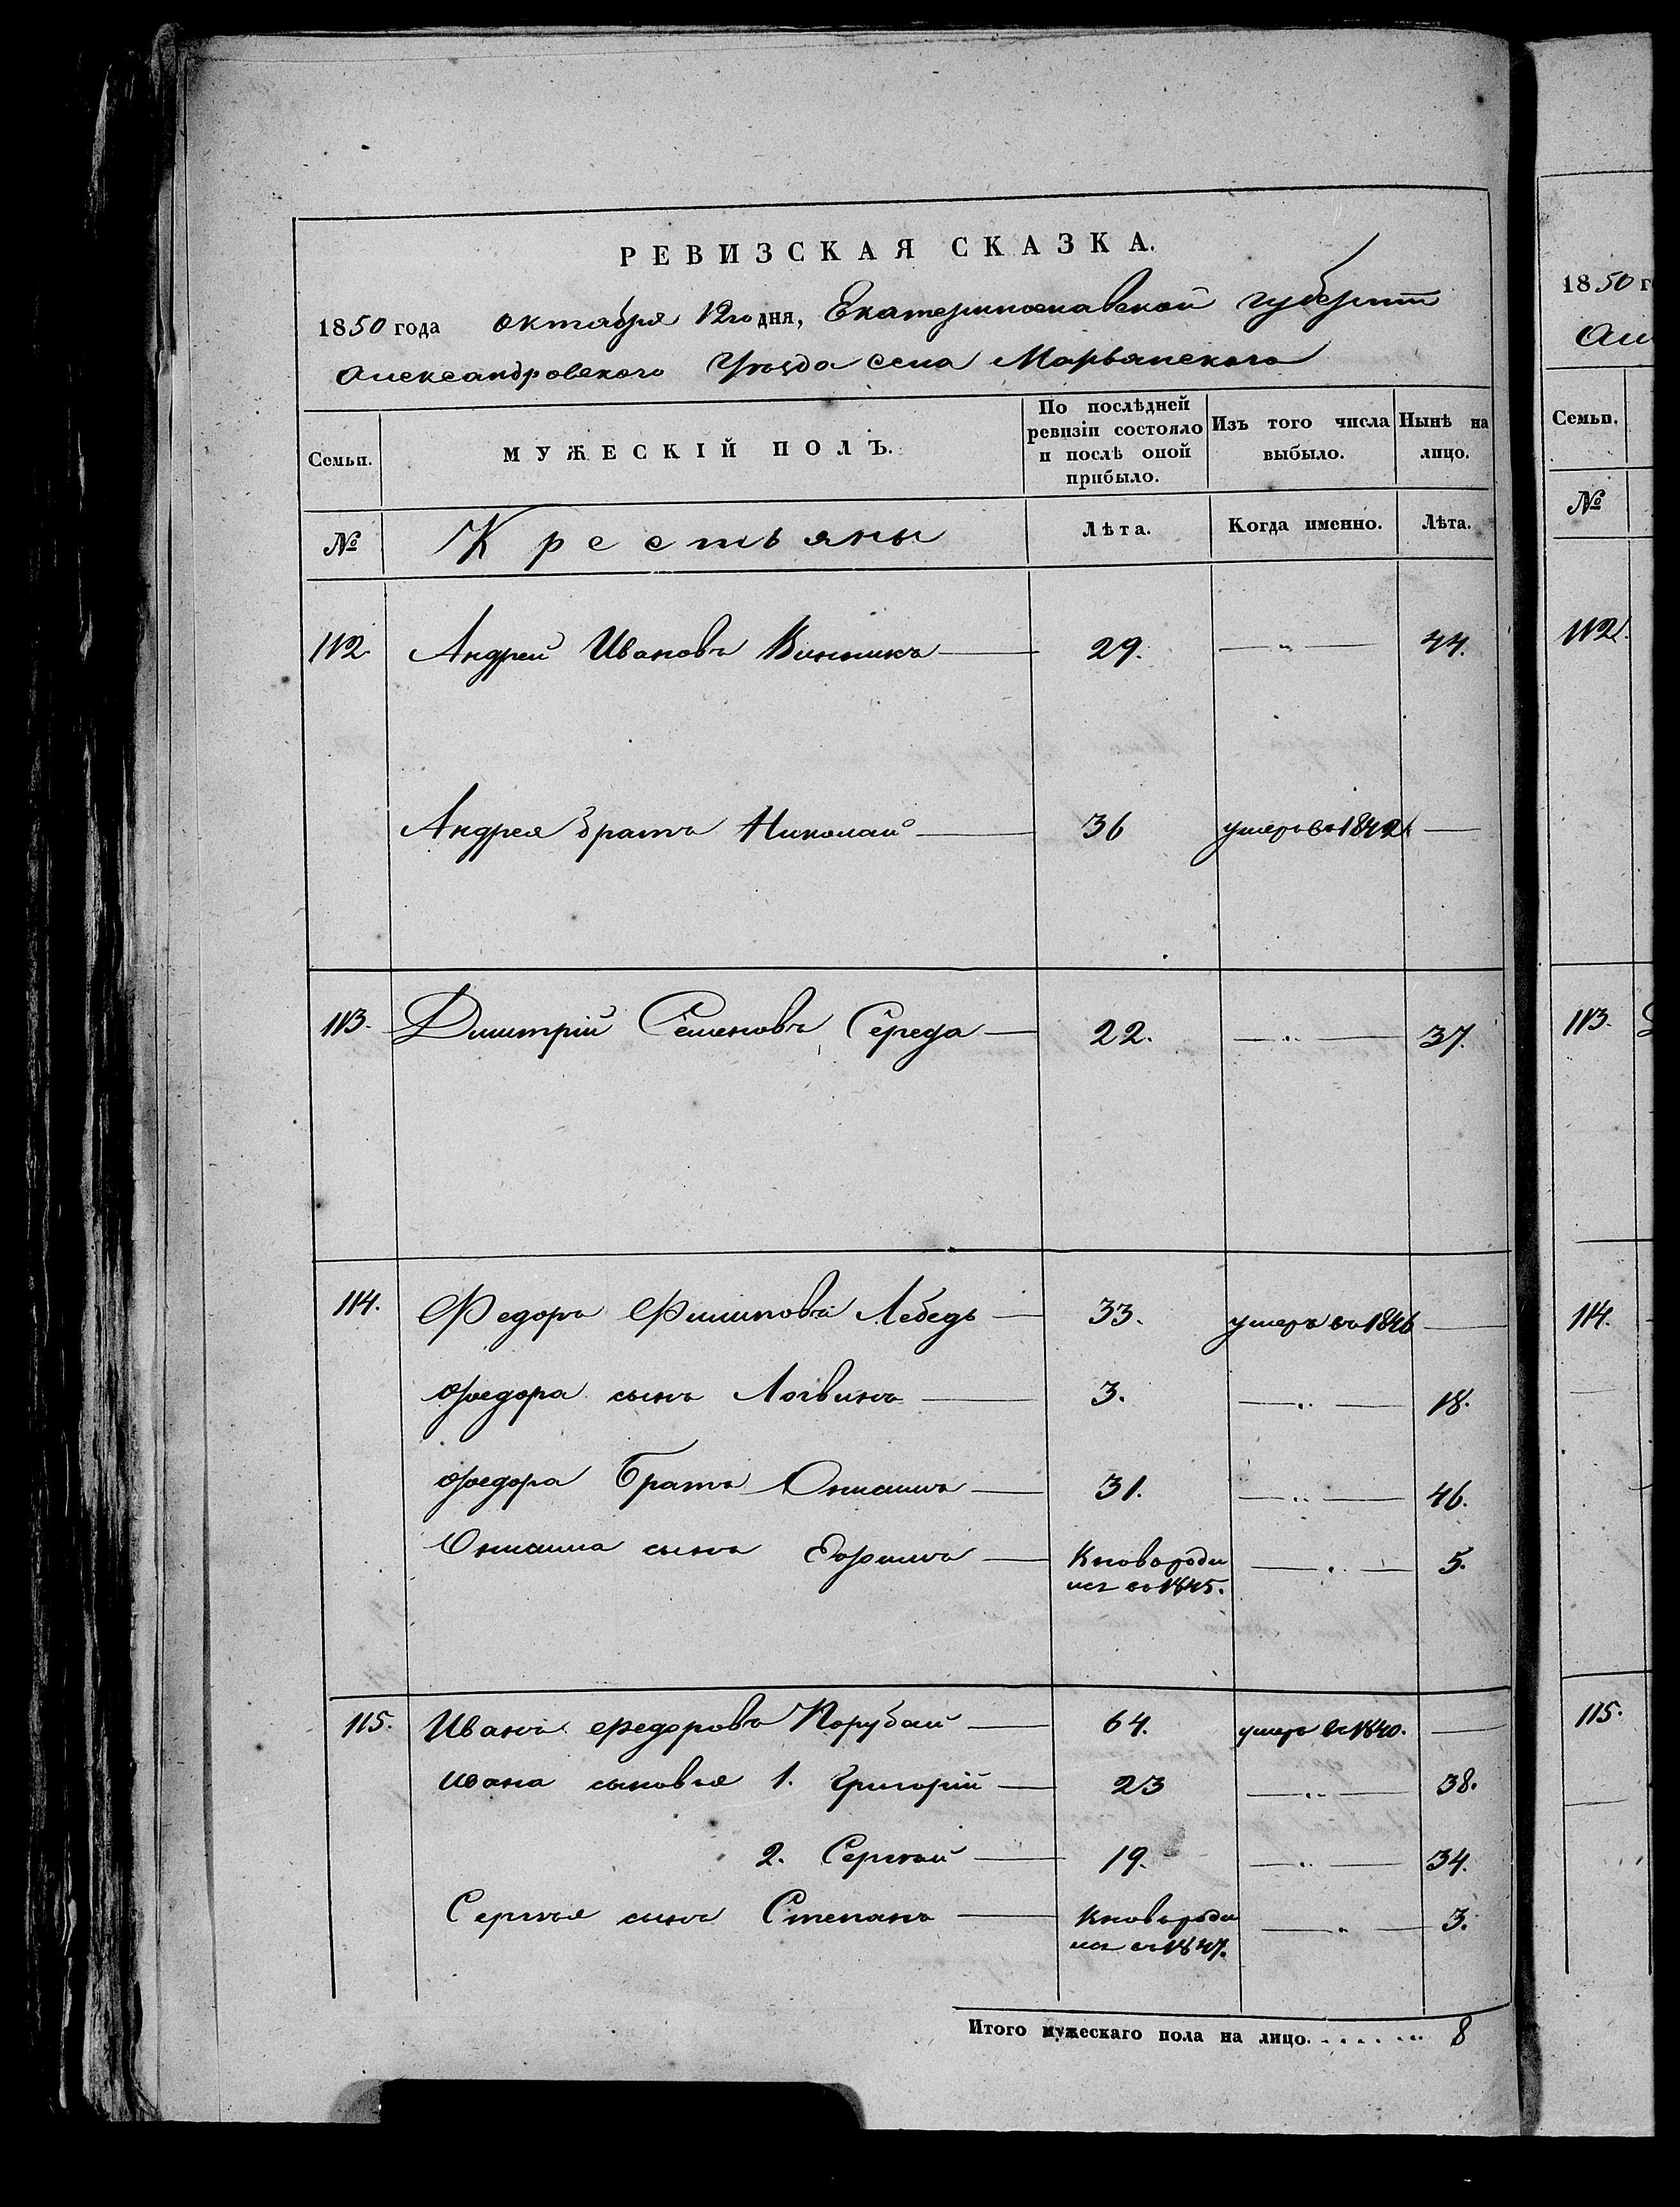 РЕВИЗСКАЯ СКАЗКА.
1850 года октября 12го дня, Екатеринославской губернии
Александровского Уѣзда села Марьянского
Семьи.
МУЖЕСКІЙ ПОЛЪ.
По послѣдней ревизіи состояло и послѣ оной прибыло.
Изъ того числа выбыло.
Нынѣ на лицо.
№
Крестьяны
Лѣта.
Когда именно.
Лѣта.
112 Андрей Ивановъ Винникъ — 29. — „ — 44.
Андрея братъ Николай — 36 умеръ въ 1842 —
113. Дмитрій Семеновъ Середа — 22. — „ — 37.
114. Федоръ Филиповъ Лебедь — 33. умеръ въ 1846 —
Федора сынъ Логвинъ — 3. — „ — 18.
Федора Братъ Онисимъ — 31. — „ — 46.
Онисима сынъ Ефимъ — Кновороди — „ — 5.
лся въ 1845.
115. Иванъ Федоровъ Порубай — 64. умеръ въ 1840. —
Ивана сыновья 1. Григорій — 23 — „ — 38.
2. Сергѣй — 19. — „ — 34.
Сергѣя сынъ Степанъ — Кновороди — „ — 3.
лся въ 1847.
Итого мужескаго пола на лицо. . . . . . . . 8
1850 г
Семьи.
№
112.
113.
114.
115.